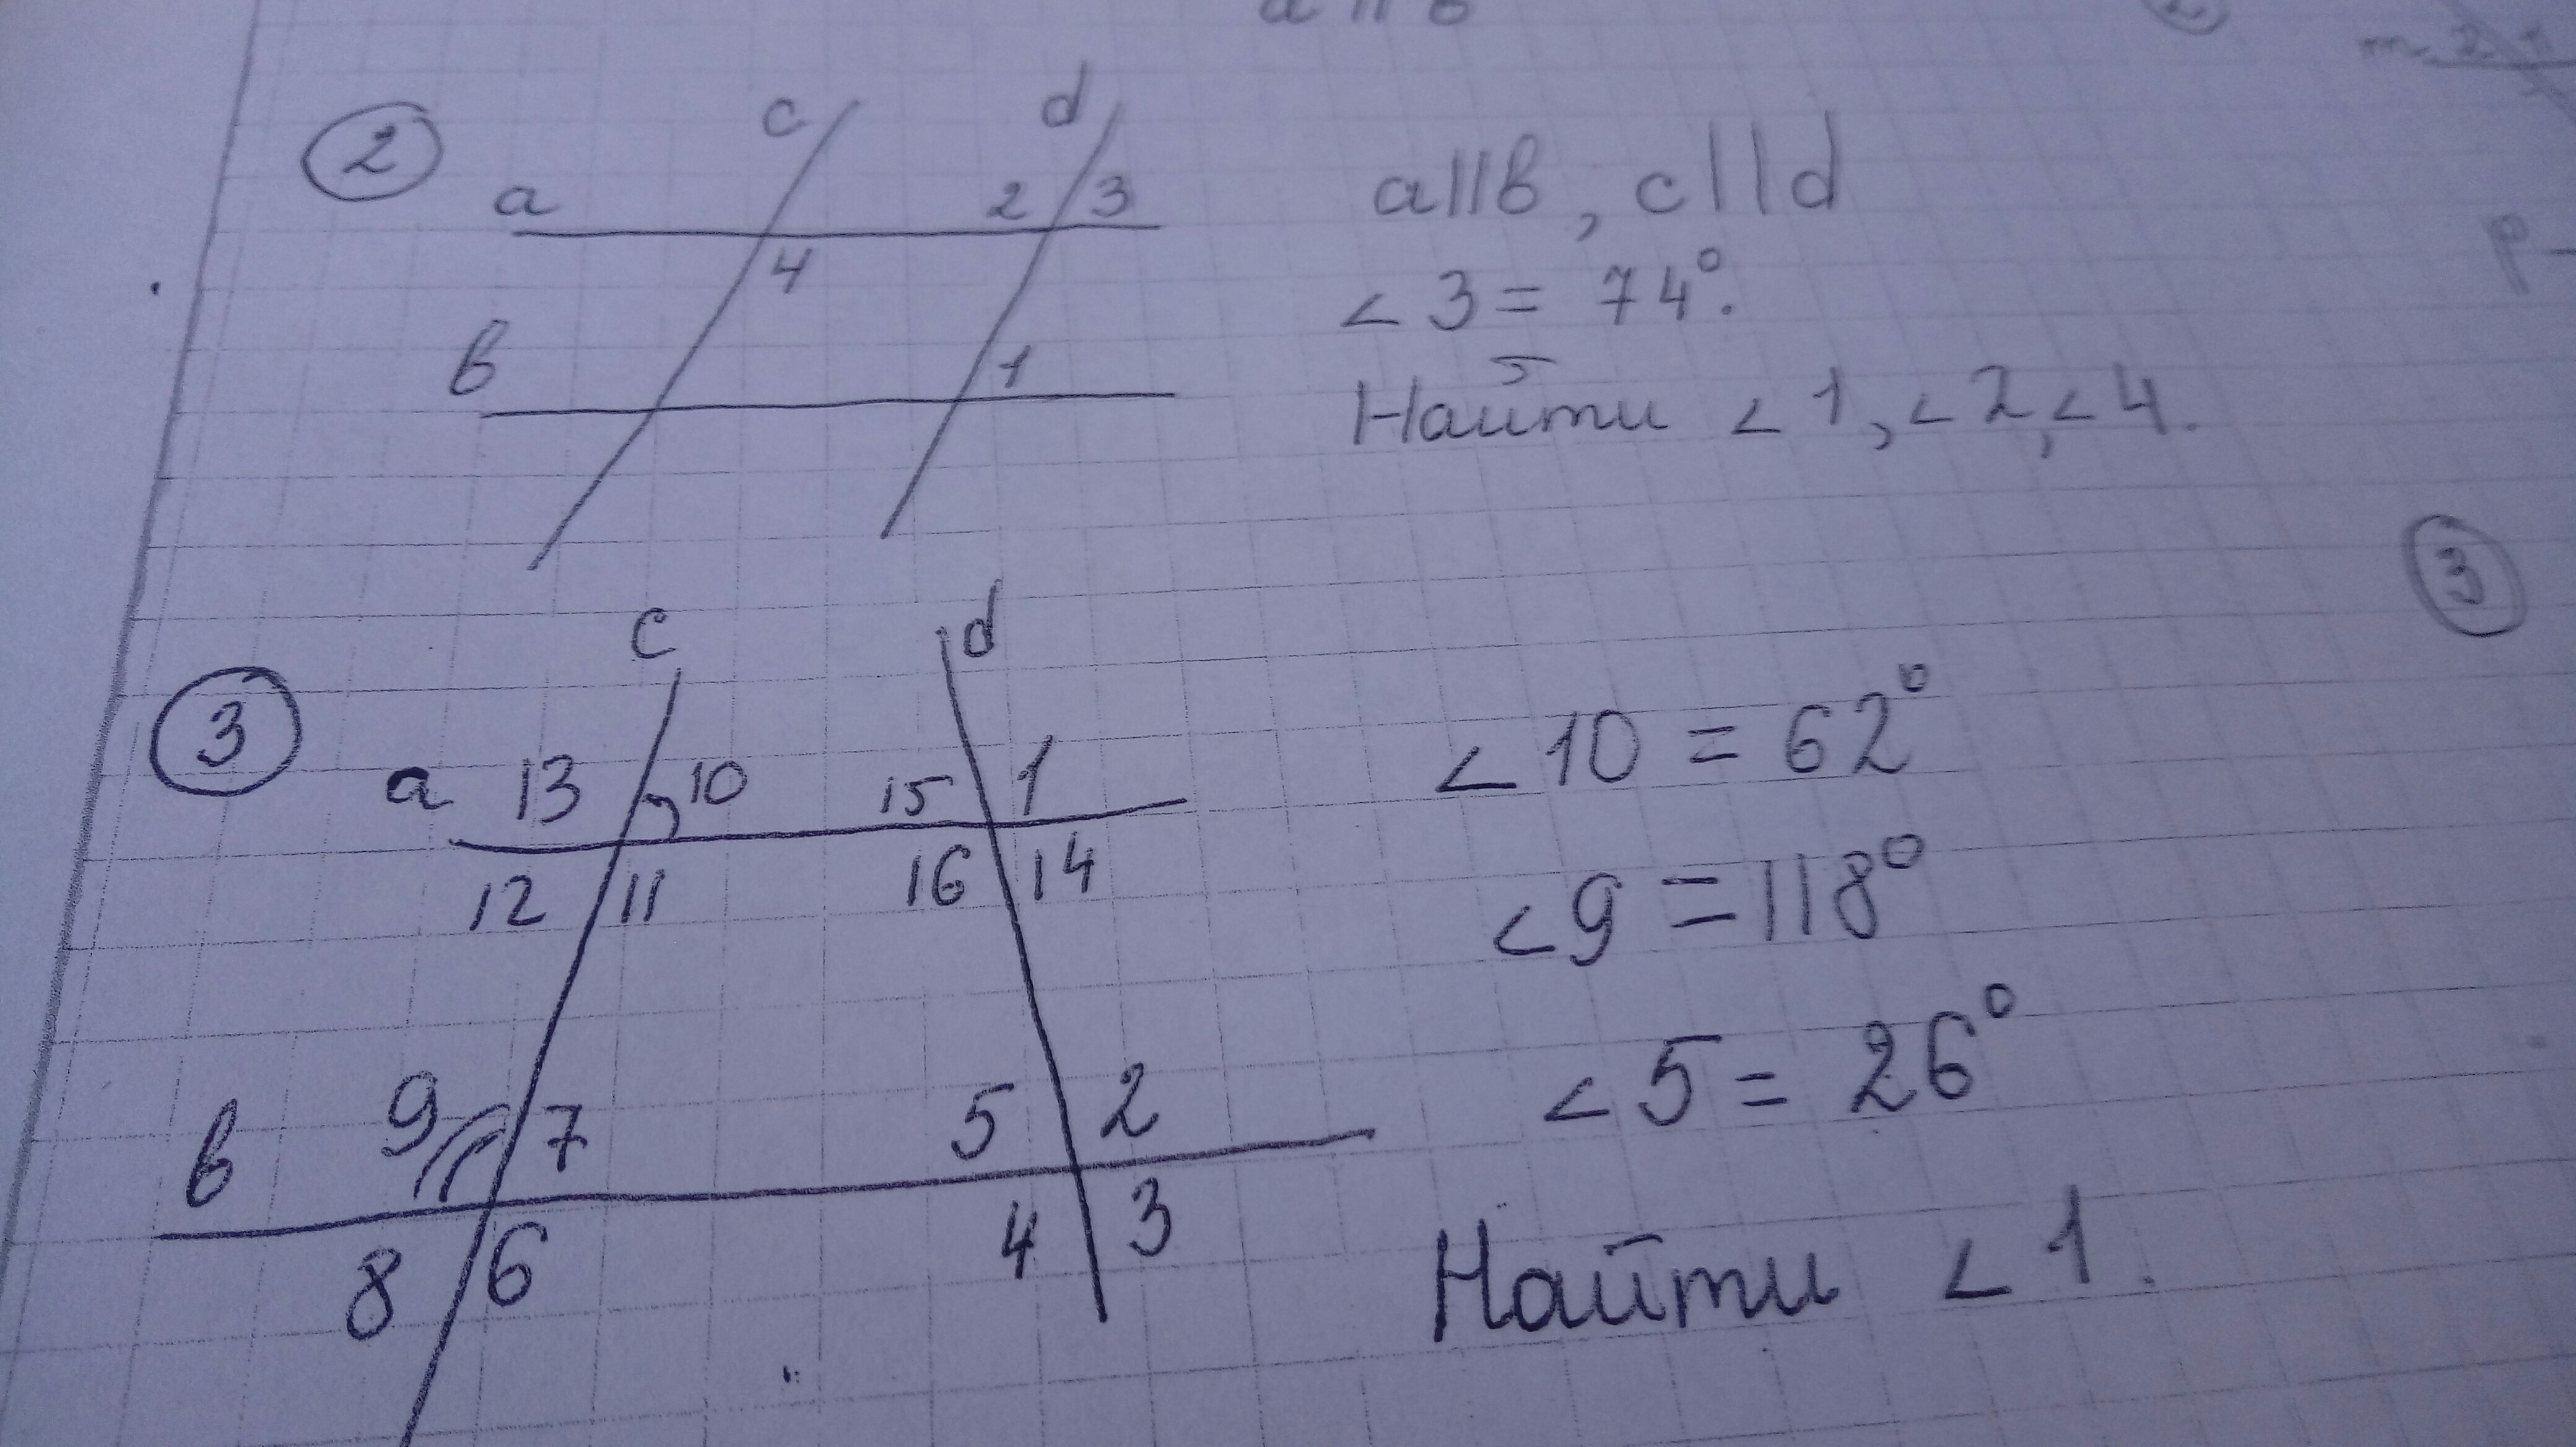 a || в
2
m 2 1
②
c d
a 2 3
4
в 1
a||в, c||d
<3 = 74°.
Найти <1, <2, <4.
р
③
c d
a 13 10 15 1
12 11 16 14
в 9 7 5 2
8 6 4 3
<10 = 62°
<9 = 118°
<5 = 26°
Найти <1.
③